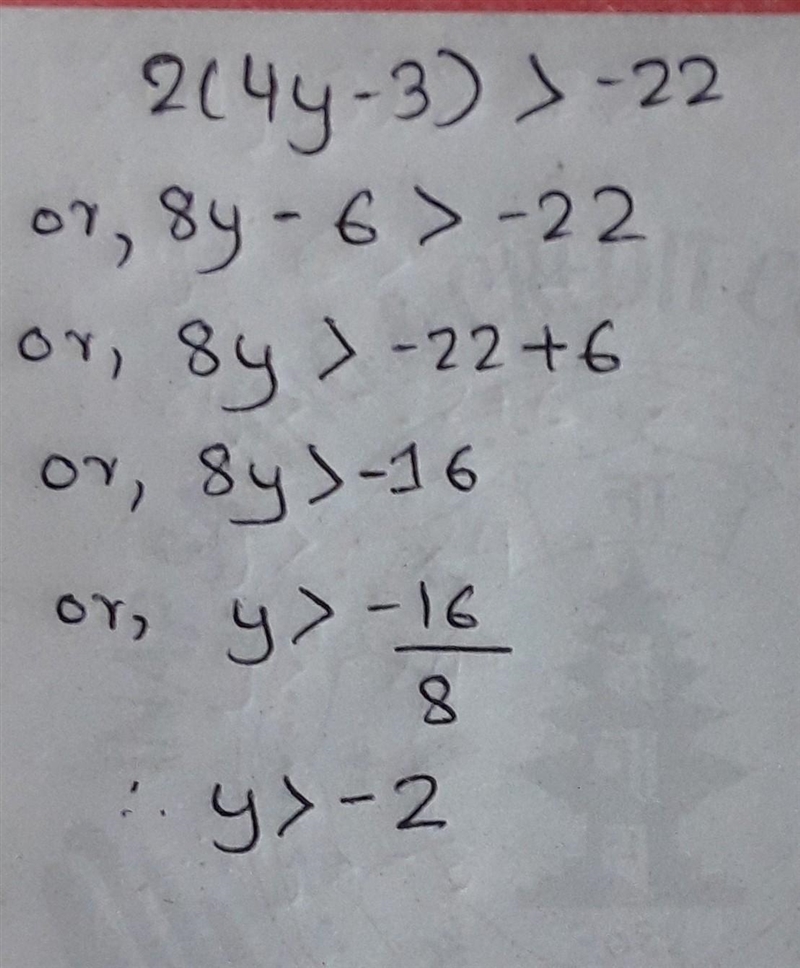 2(4y-3) > -22
or, 8y - 6 > -22
or, 8y > -22+6
or, 8y > -16
or, y > -16/8
∴ y > -2